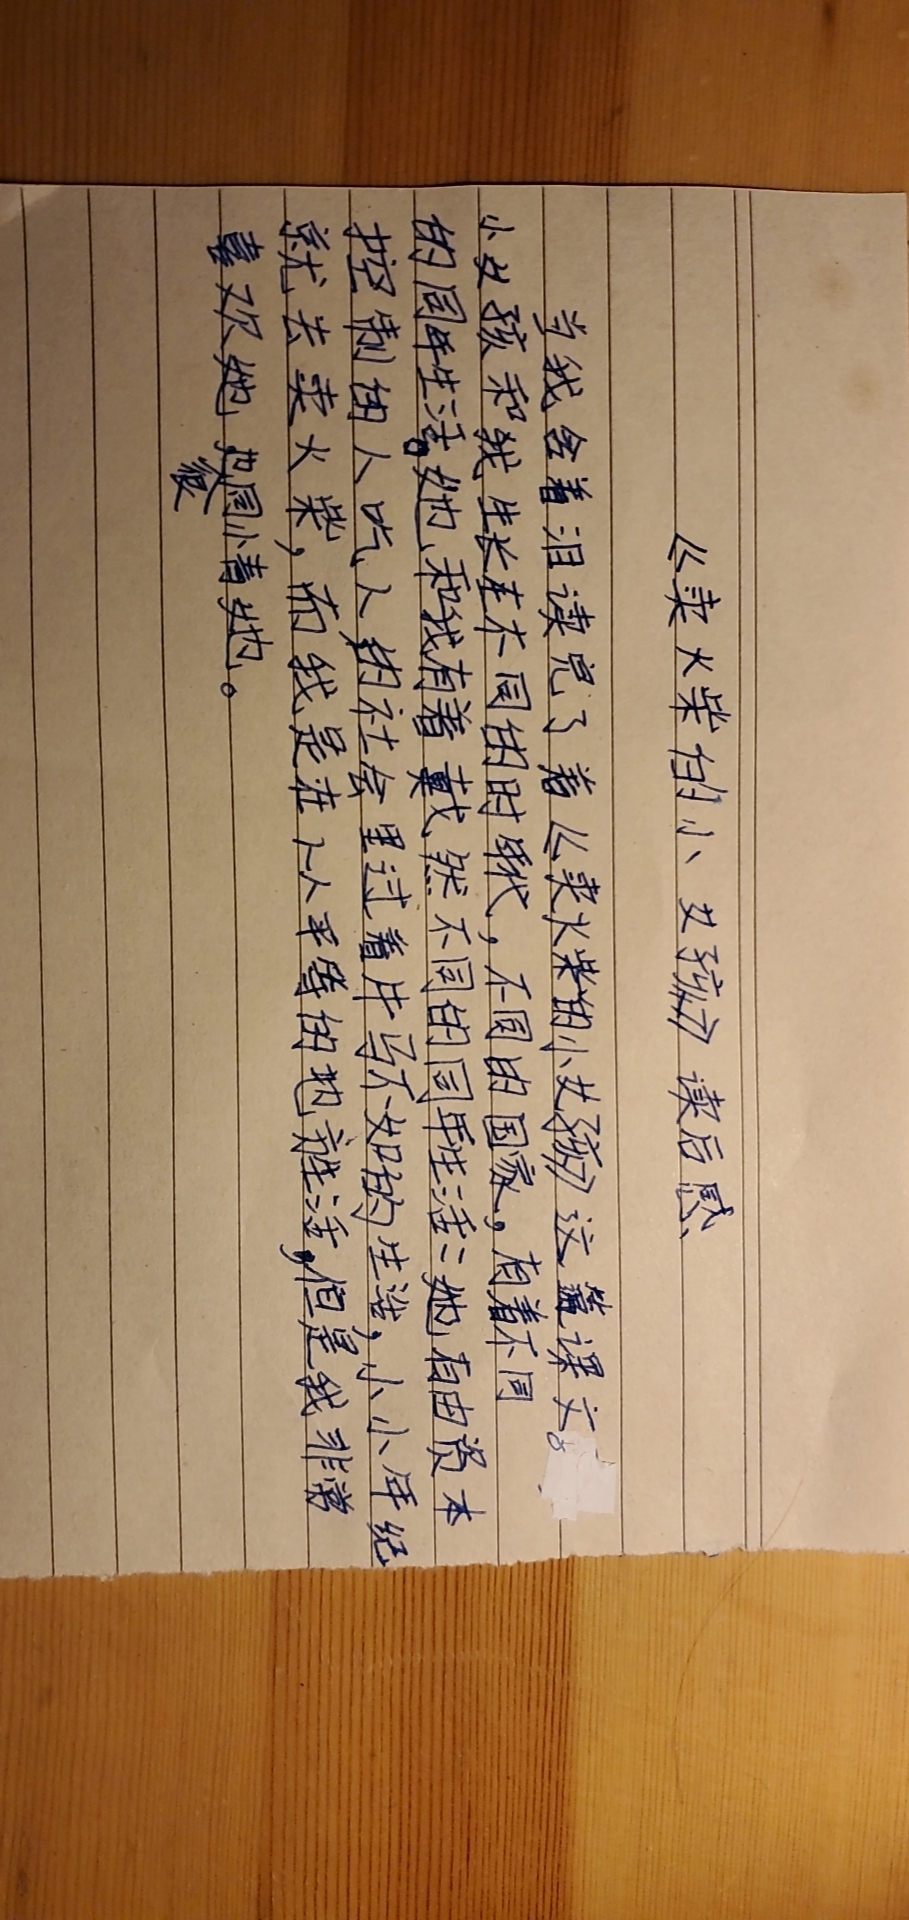 《卖火柴的小女孩》读后感
当我含着泪读完了着《卖火柴的小女孩》这篇课文。
小女孩和我生长在不同的时代，不同的国家，有着不同
的同年生活。她和我有着戴然不同的同年生活：她有由资本
控制的人吃人的社会里过着牛马不如的生活，小小年纪
就去卖火柴，而我是在人人平等的地生活，但是我非常
喜欢她，也很同小着她。